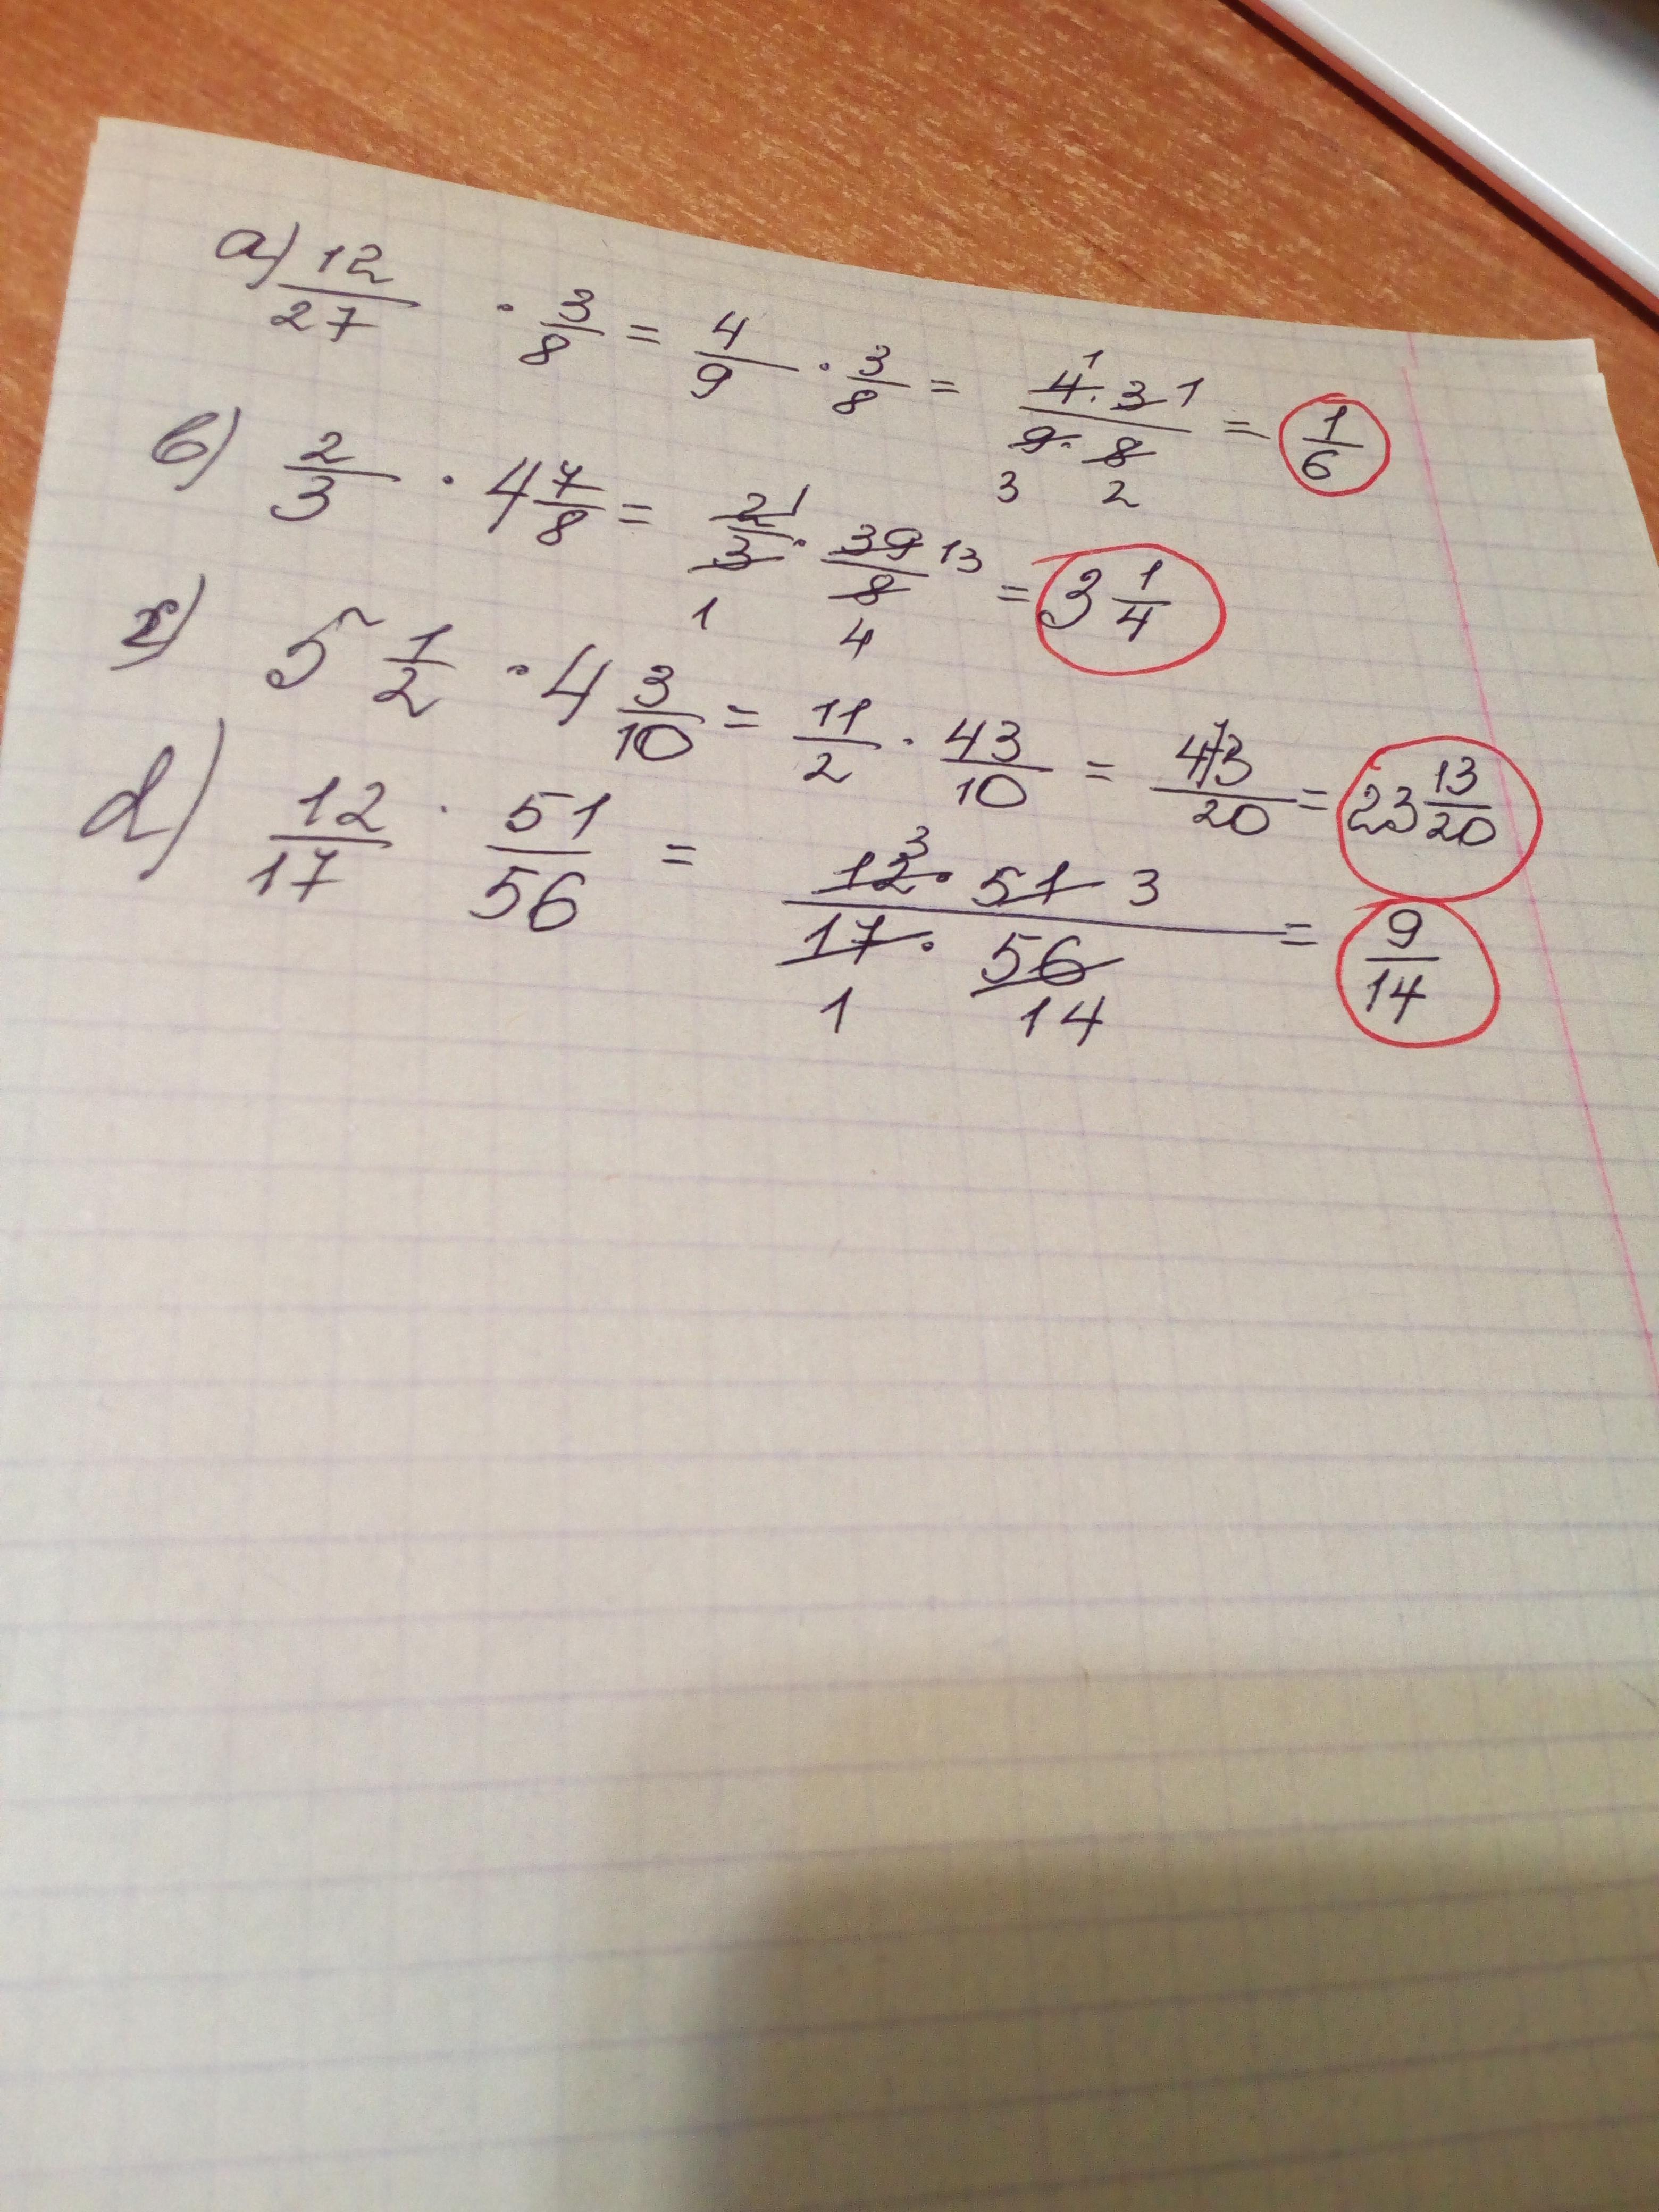 а) 12/27 · 3/8 = 4/9 · 3/8 = 4 1 · 3 1 / 9 3 · 8 2 = 1/6
в) 2/3 · 4 7/8 = 2 1 / 3 1 · 39 13 / 8 4 = 3 1/4
г) 5 1/2 · 4 3/10 = 11/2 · 43/10 = 473/20 = 23 13/20
d) 12/17 · 51/56 = 12 3 · 51 3 / 17 1 · 56 14 = 9/14